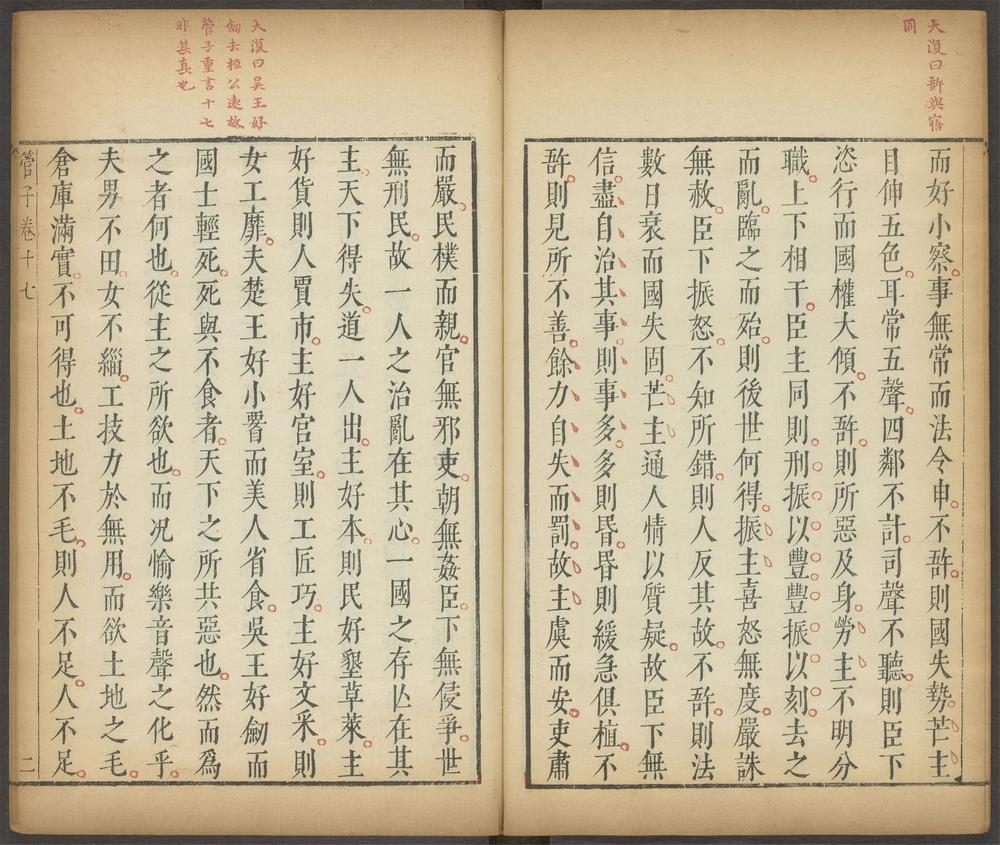 大復曰訴與寤
同
而好小察事無常而法令申不訴則國失勢芒主
目伸五色耳常五聲四鄰不計司聲不聽則臣下
恣行而國權大傾不訴則所惡及身勞主不明分
職上下相干臣主同則刑振以豐豐振以刻去之
而亂臨之而殆則後世何得振主喜怒無度嚴誅
無赦臣下振怒不知所錯則人反其故不訴則法
數日衰而國失固芒主通人情以質疑故臣下無
信盡自治其事則事多多則昏昏則緩急俱植不
訴則見所不善餘力自失而罰故主虞而安吏肅
大復曰吳王好
劒去桓公遠故
管子重言十七
非其真也
而嚴民樸而親官無邪吏朝無姦臣下無侵爭世
無刑民故一人之治亂在其心一國之存亾在其
主天下得失道一人出主好本則民好墾草萊主
好貨則人賈市主好宮室則工匠巧主好文采則
女工靡夫楚王好小䙅而美人省食吳王好劒而
國士輕死死與不食者天下之所共惡也然而爲
之者何也從主之所欲也而況愉樂音聲之化乎
夫男不田女不緇工技力於無用而欲土地之毛
倉庫滿實不可得也土地不毛則人不足人不足
管子卷十七
二